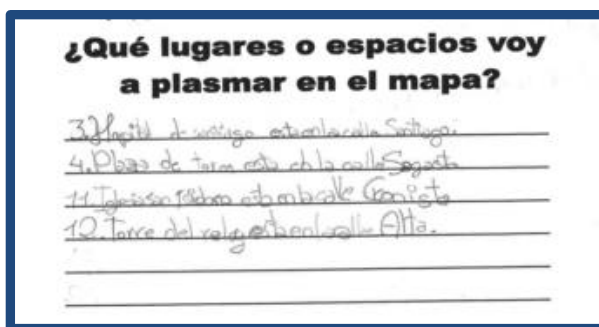 ¿Qué lugares o espacios voy
a plasmar en el mapa?
3. Hospital de santiago esta en la calle Santiago.
4. Plaza de toros esta en la calle Sagasta
11. Iglesia san esta en la calle Cronista
12. Torre del reloj esta en la calle Alta.